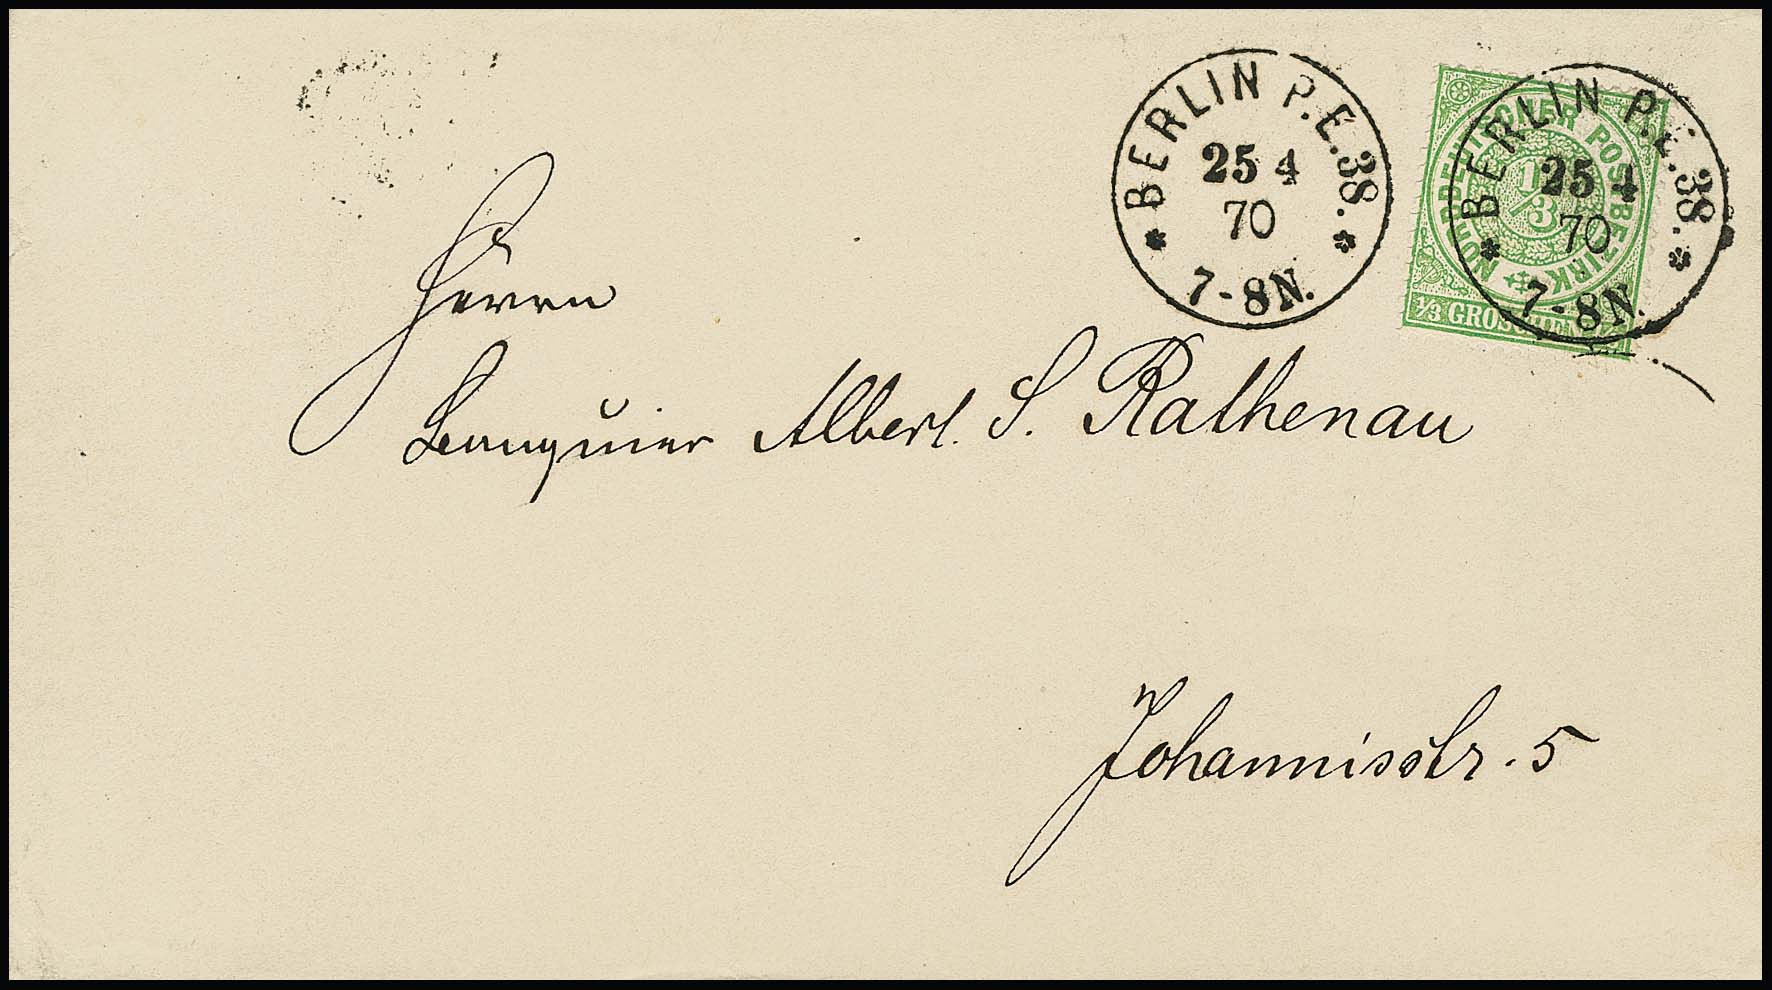 BERLIN P.E.38.
25 4
70
7-8N.
NORDDEUTSCHER POSTBEZIRK
1/3
1/3 GROSCHEN
BERLIN P.E.38.
25 4
70
7-8N.
Herrn
Banquier Albert S. Rathenau
Johannisstr. 5